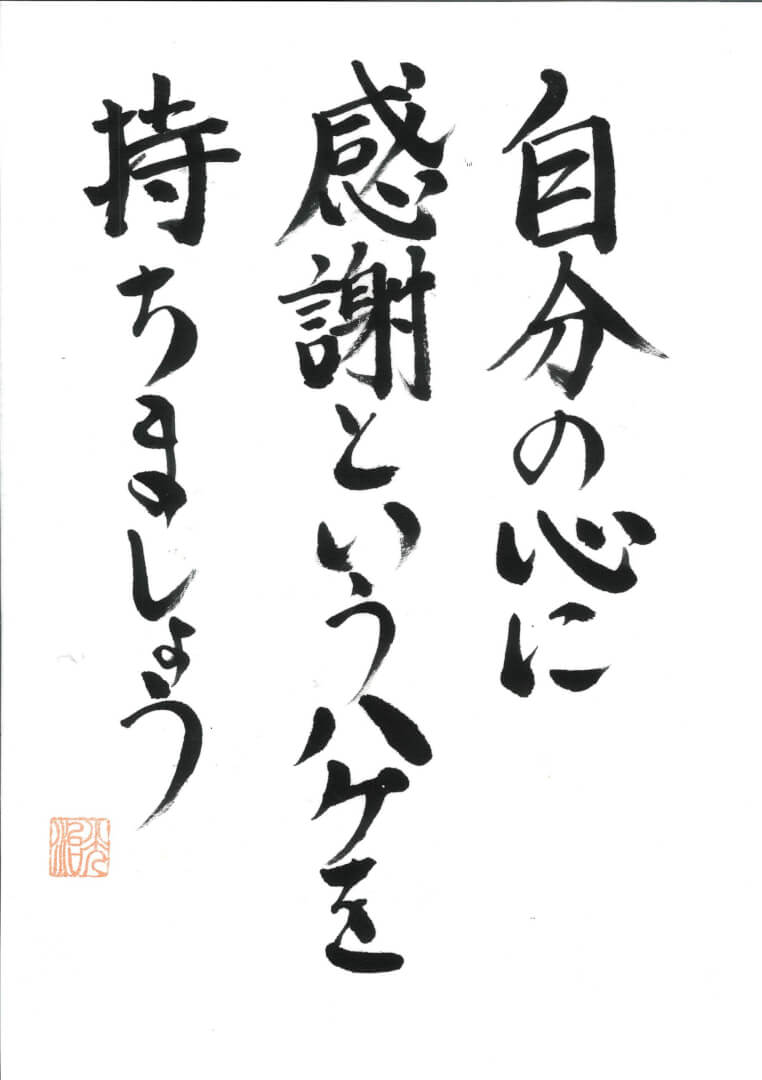 自分の心に
感謝というハケを
持ちましょう